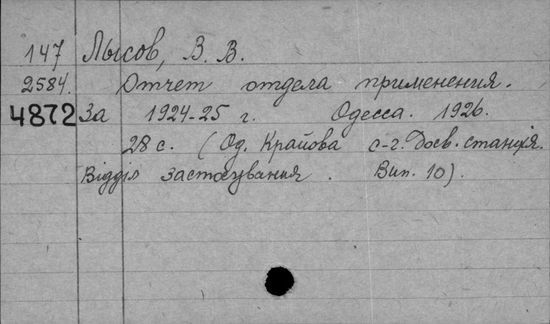 147 Лысов, В. В.
2584. Отчет отдела применения.
4872 За 1924-25 г. Одесса. 1926.
28 с. (Од. Крайова с-г. Досв. станція.
Відділ застосування. Вип. 10).